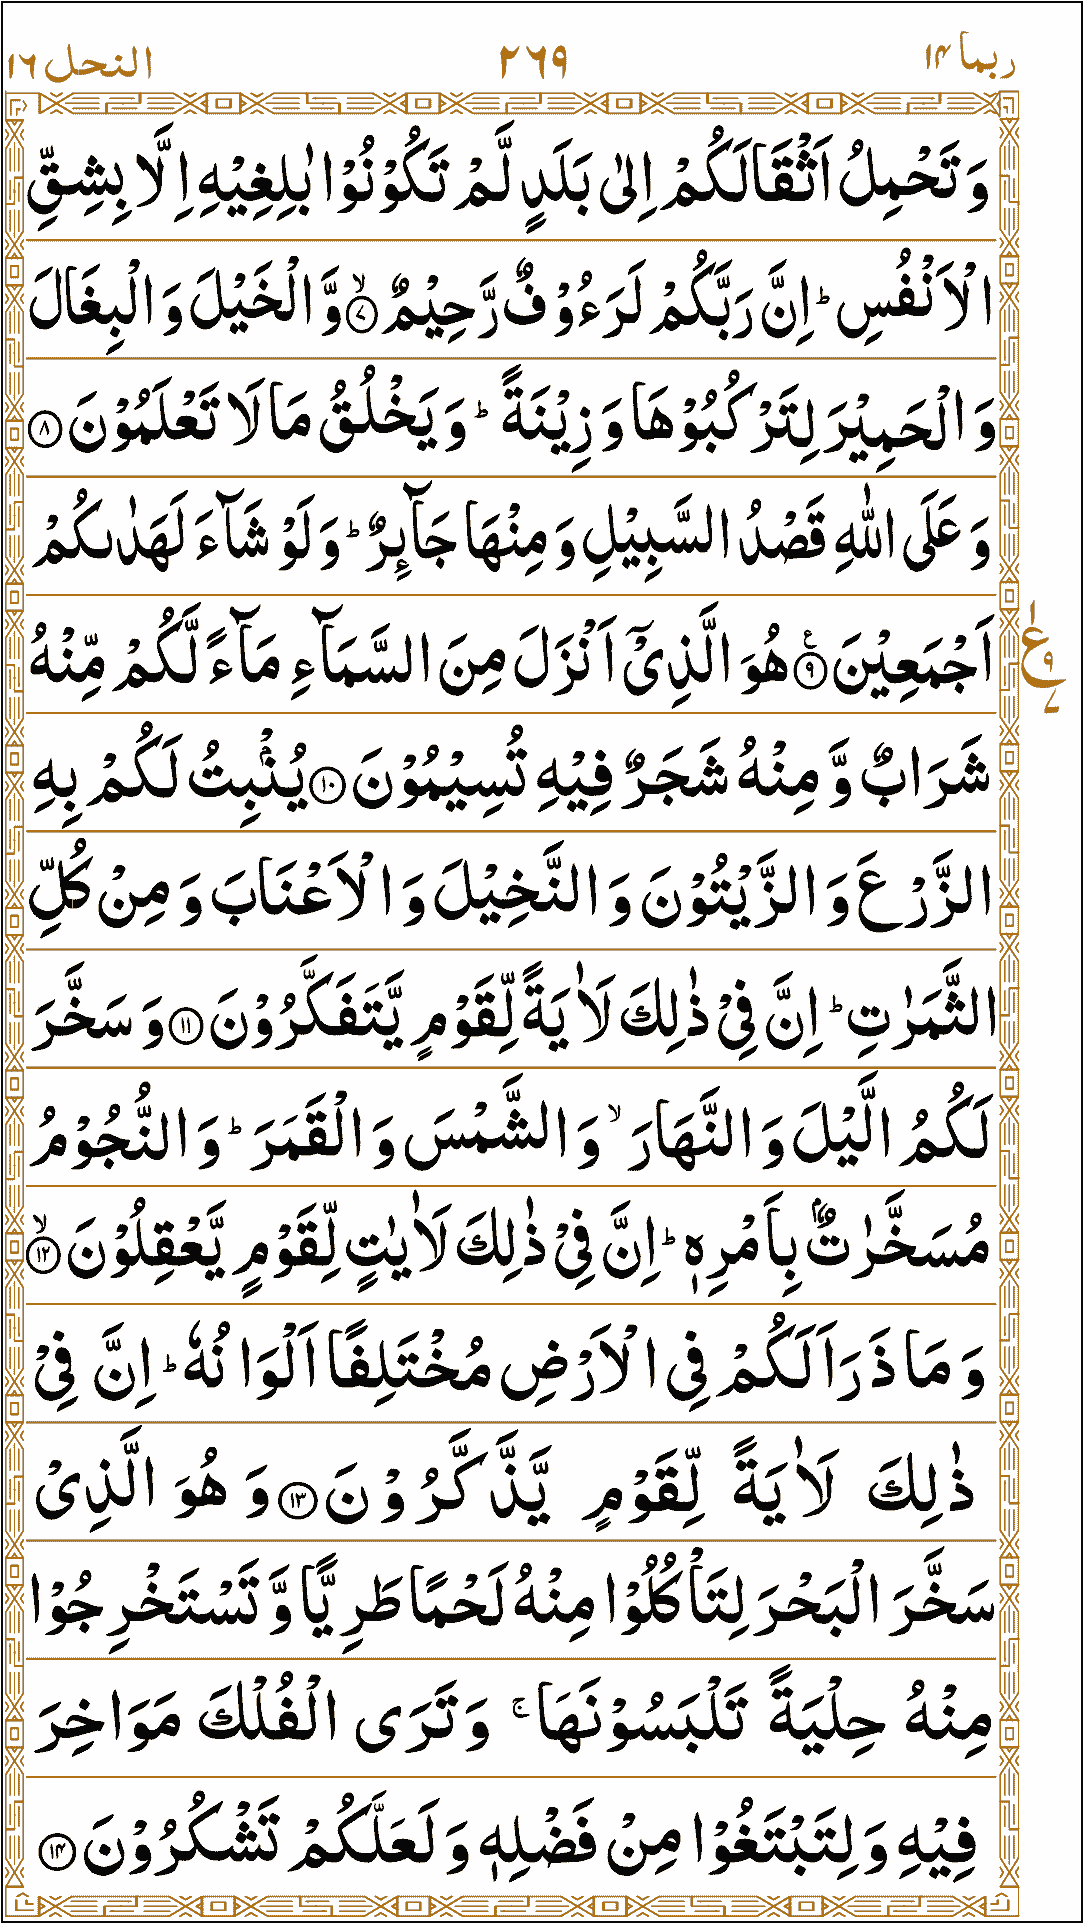 ربما ۱۴ ۲۶۹ النحل ۱۶
وَ تَحْمِلُ اَثْقَالَكُمْ اِلٰى بَلَدٍ لَّمْ تَكُوْنُوْا بٰلِغِيْهِ اِلَّا بِشِقِّ
الْاَنْفُسِ ؕ اِنَّ رَبَّكُمْ لَرَءُوْفٌ رَّحِيْمٌ ۙ۷ وَّ الْخَيْلَ وَ الْبِغَالَ
وَ الْحَمِيْرَ لِتَرْكَبُوْهَا وَ زِيْنَةً ؕ وَ يَخْلُقُ مَا لَا تَعْلَمُوْنَ ۸
وَ عَلَى اللّٰهِ قَصْدُ السَّبِيْلِ وَ مِنْهَا جَآىِٕرٌ ؕ وَ لَوْ شَآءَ لَهَدٰىكُمْ
اَجْمَعِيْنَ ۹ع هُوَ الَّذِيْۤ اَنْزَلَ مِنَ السَّمَآءِ مَآءً لَّكُمْ مِّنْهُ
ع ۱ ۹ ۷
شَرَابٌ وَّ مِنْهُ شَجَرٌ فِيْهِ تُسِيْمُوْنَ ۱۰ يُنْۢبِتُ لَكُمْ بِهِ
الزَّرْعَ وَ الزَّيْتُوْنَ وَ النَّخِيْلَ وَ الْاَعْنَابَ وَ مِنْ كُلِّ
الثَّمَرٰتِ ؕ اِنَّ فِيْ ذٰلِكَ لَاٰيَةً لِّقَوْمٍ يَّتَفَكَّرُوْنَ ۱۱ وَ سَخَّرَ
لَكُمُ الَّيْلَ وَ النَّهَارَ ۙ وَ الشَّمْسَ وَ الْقَمَرَ ؕ وَ النُّجُوْمُ
مُسَخَّرٰتٌۢ بِاَمْرِهٖ ؕ اِنَّ فِيْ ذٰلِكَ لَاٰيٰتٍ لِّقَوْمٍ يَّعْقِلُوْنَ ۙ۱۲
وَ مَا ذَرَاَ لَكُمْ فِي الْاَرْضِ مُخْتَلِفًا اَلْوَانُهٗ ؕ اِنَّ فِيْ
ذٰلِكَ لَاٰيَةً لِّقَوْمٍ يَّذَّكَّرُوْنَ ۱۳ وَ هُوَ الَّذِيْ
سَخَّرَ الْبَحْرَ لِتَاْكُلُوْا مِنْهُ لَحْمًا طَرِيًّا وَّ تَسْتَخْرِجُوْا
مِنْهُ حِلْيَةً تَلْبَسُوْنَهَا ۚ وَ تَرَى الْفُلْكَ مَوَاخِرَ
فِيْهِ وَ لِتَبْتَغُوْا مِنْ فَضْلِهٖ وَ لَعَلَّكُمْ تَشْكُرُوْنَ ۱۴